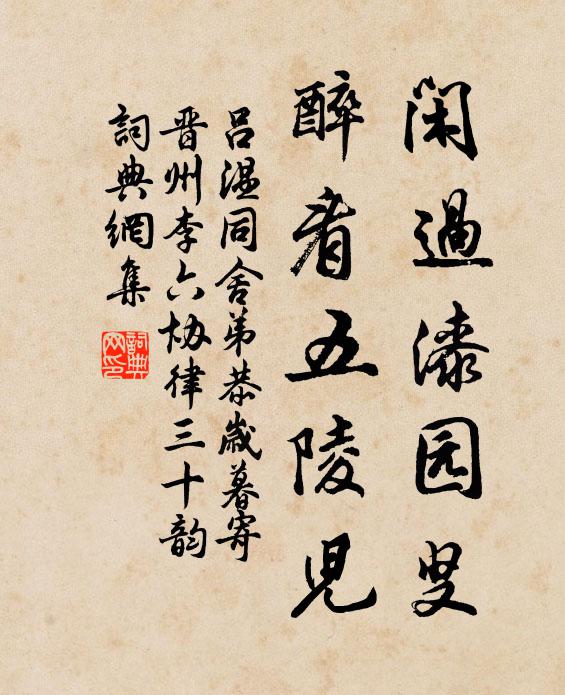 闲過漆园叟
醉看五陵児
吕温同舍弟恭歲暮寄
晋州李六协律三十韵
詞典網集
詞典网印